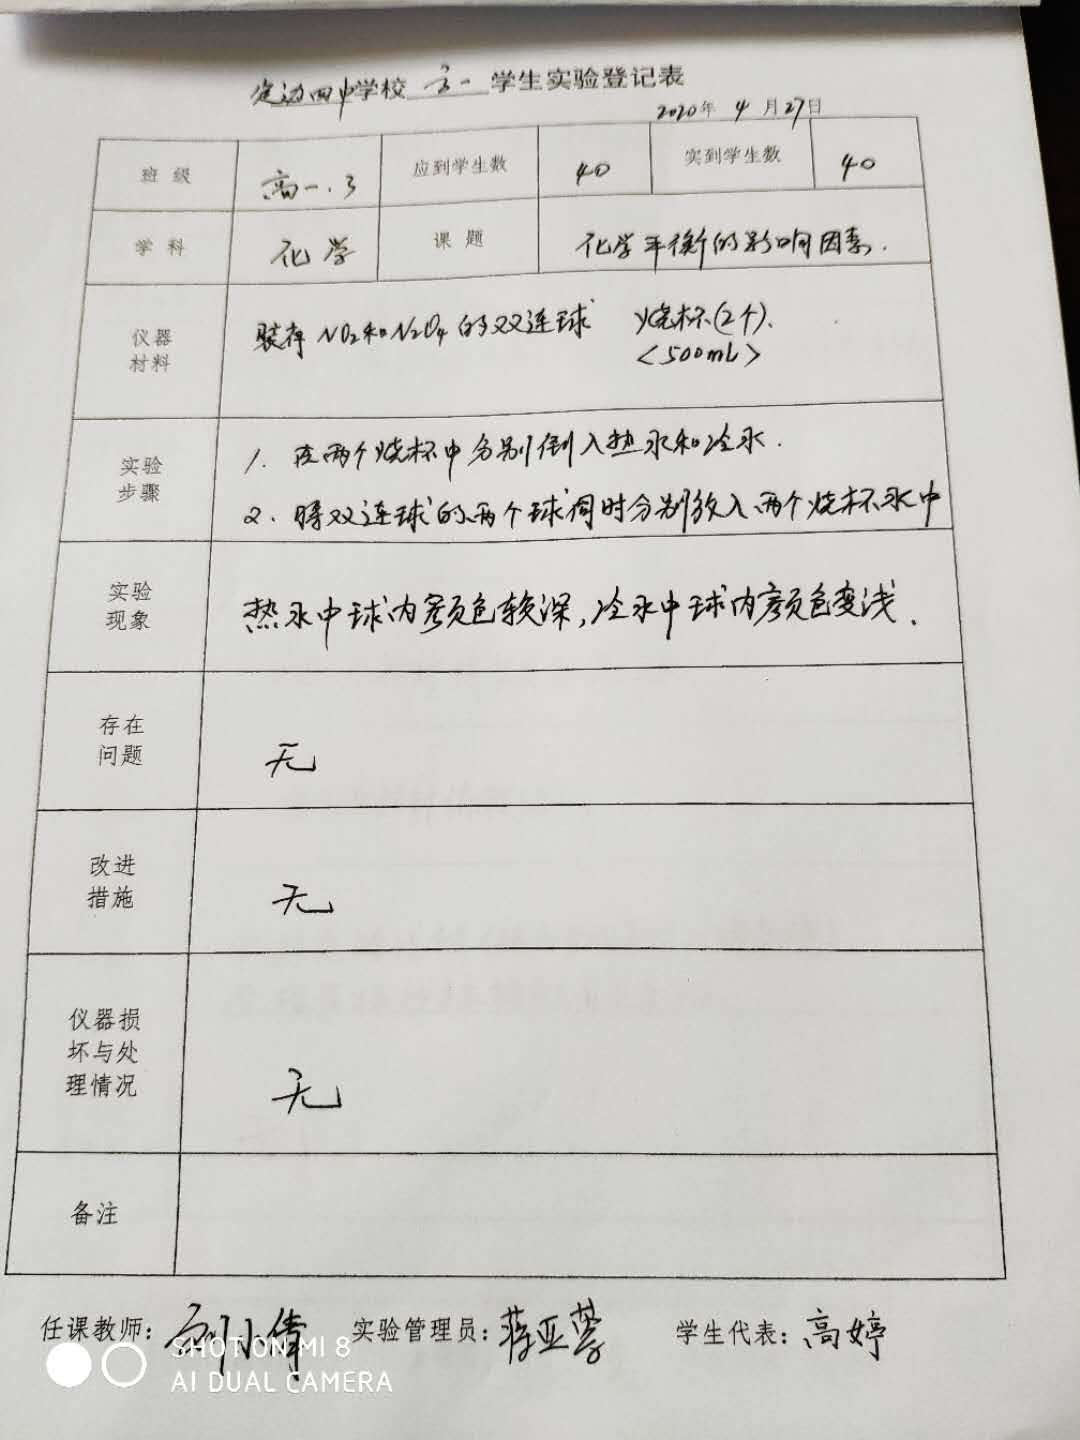 定边四中学校 高一 学生实验登记表
2020年 4 月 27日
班 级 高一.3 应到学生数 40 实到学生数 40
学 科 化学 课 题 化学平衡的影响因素.
仪器
材料
装有NO₂和N₂O₄的双连球 烧杯(2个).
<500mL>
实验
步骤
1. 在两个烧杯中分别倒入热水和冷水.
2. 将双连球的两个球同时分别放入两个烧杯水中
实验
现象
热水中球内颜色较深,冷水中球内颜色变浅.
存在
问题
无
改进
措施
无
仪器损
坏与处
理情况
无
备注
任课教师: 实验管理员: 蒋亚蓉 学生代表: 高婷
SHOT ON MI 8
AI DUAL CAMERA